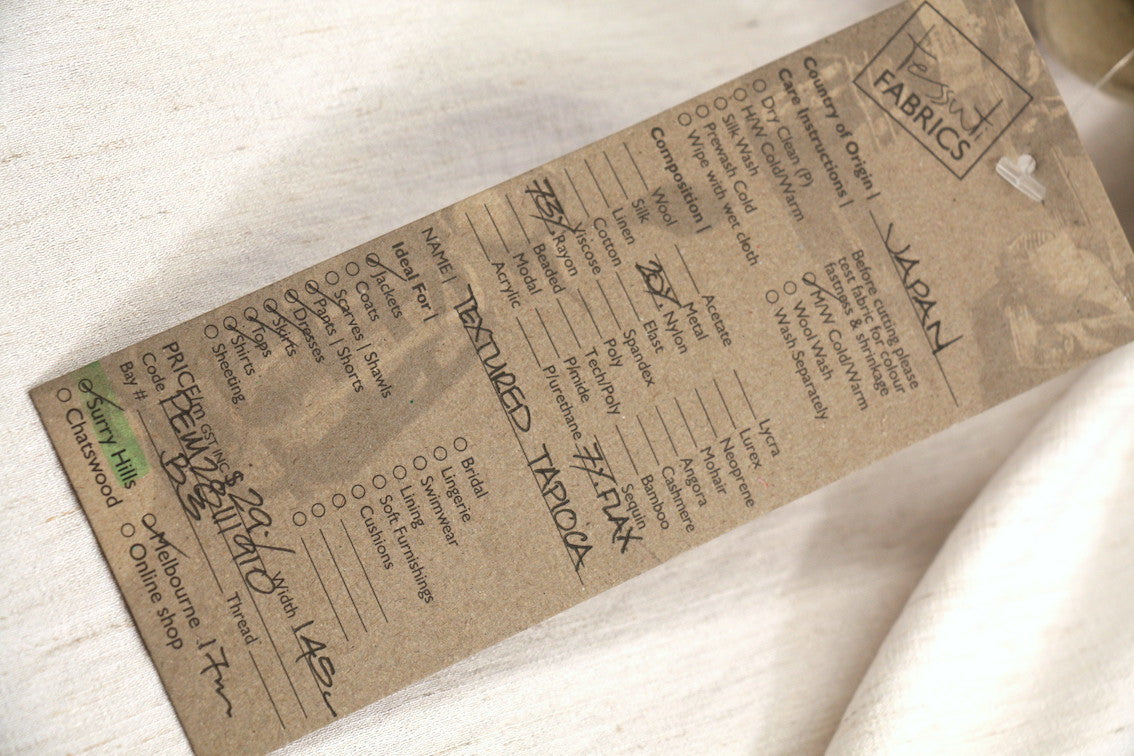 Tessuti
FABRICS
Country of Origin | JAPAN
Care Instructions |
Dry Clean (P)
H/W Cold/Warm
Silk Wash
Prewash Cold
Wipe with wet cloth
Before cutting please
test fabric for colour
fastness & shrinkage
M/W Cold/Warm
Wool Wash
Wash Separately
Composition |
Wool
Silk
Linen
Cotton
Viscose
73% Rayon
Beaded
Modal
Acrylic
Acetate
Metal
20% Nylon
Elast
Spandex
Poly
Tech/Poly
P/mide
P/urethane
Lycra
Lurex
Neoprene
Mohair
Angora
Cashmere
Bamboo
Sequin
7% FLAX
NAME | TEXTURED TAPIOCA
Ideal For |
Jackets
Coats
Scarves | Shawls
Pants | Shorts
Dresses
Skirts
Tops
Shirts
Sheeting
Bridal
Lingerie
Swimwear
Lining
Soft Furnishings
Cushions
PRICE/m GST INC $ 29.-
Width 
Code
Thread
Bay #
Surry Hills
Chatswood
Melbourne 17m
Online shop